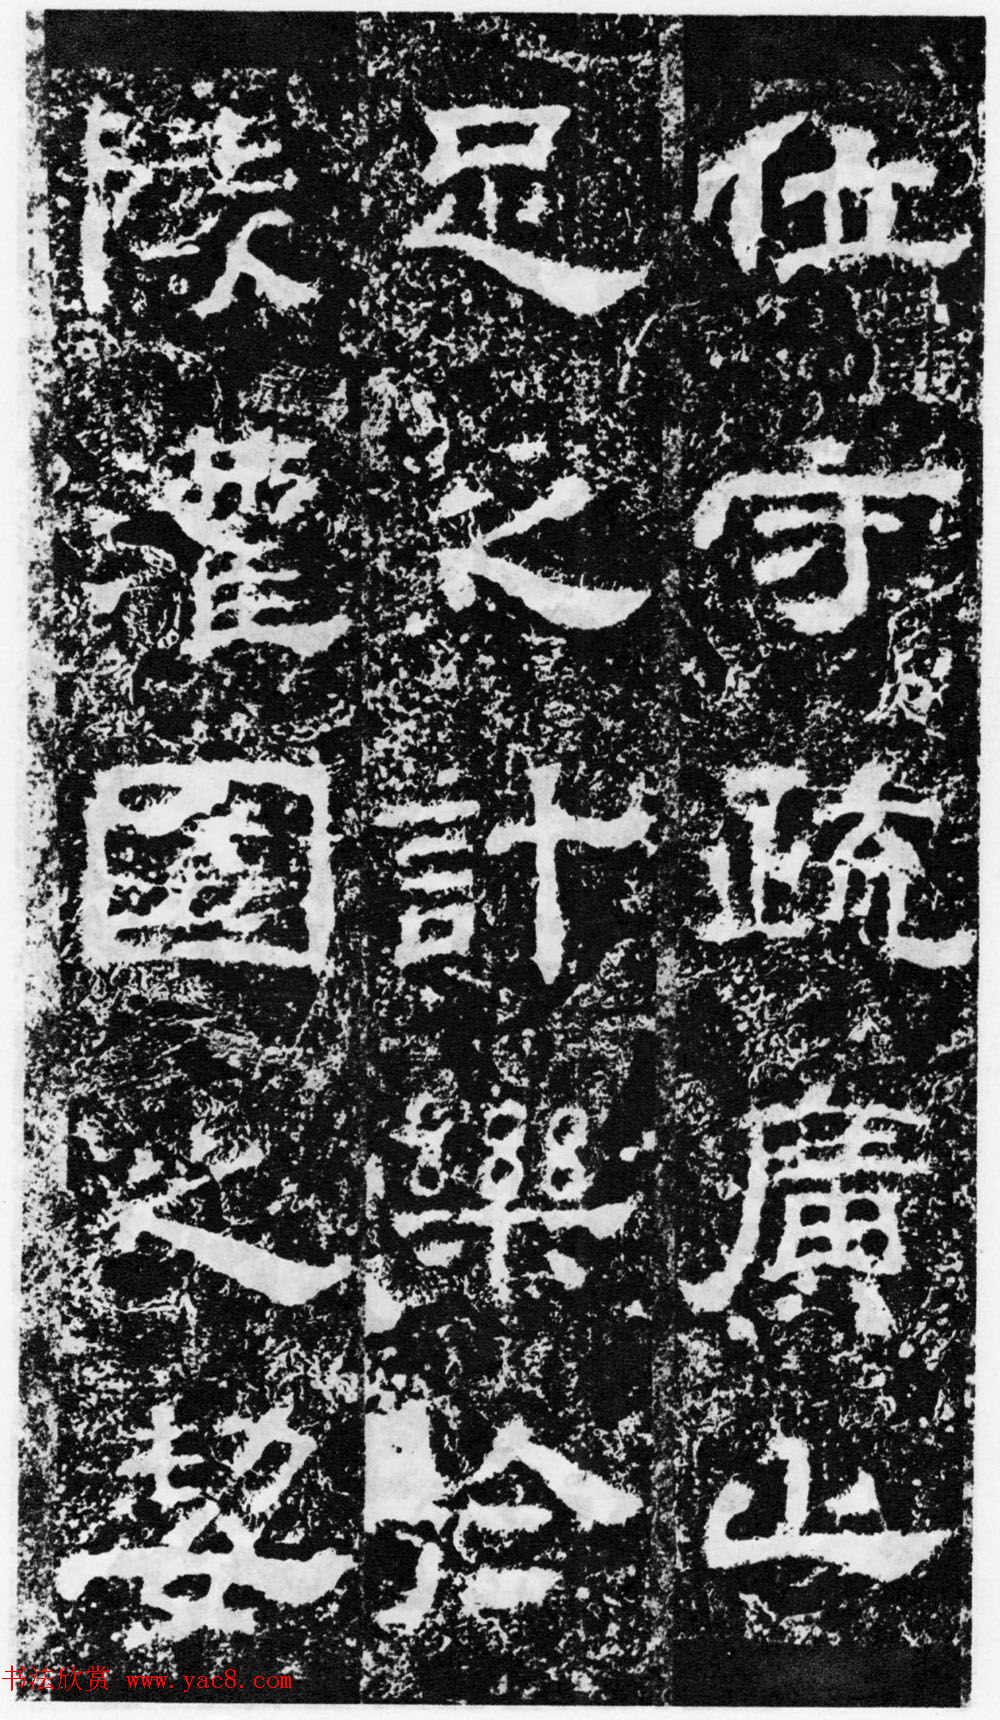 仕守疏廣止
足之計樂於
陵灌園之契
书法欣赏 www.yac8.com